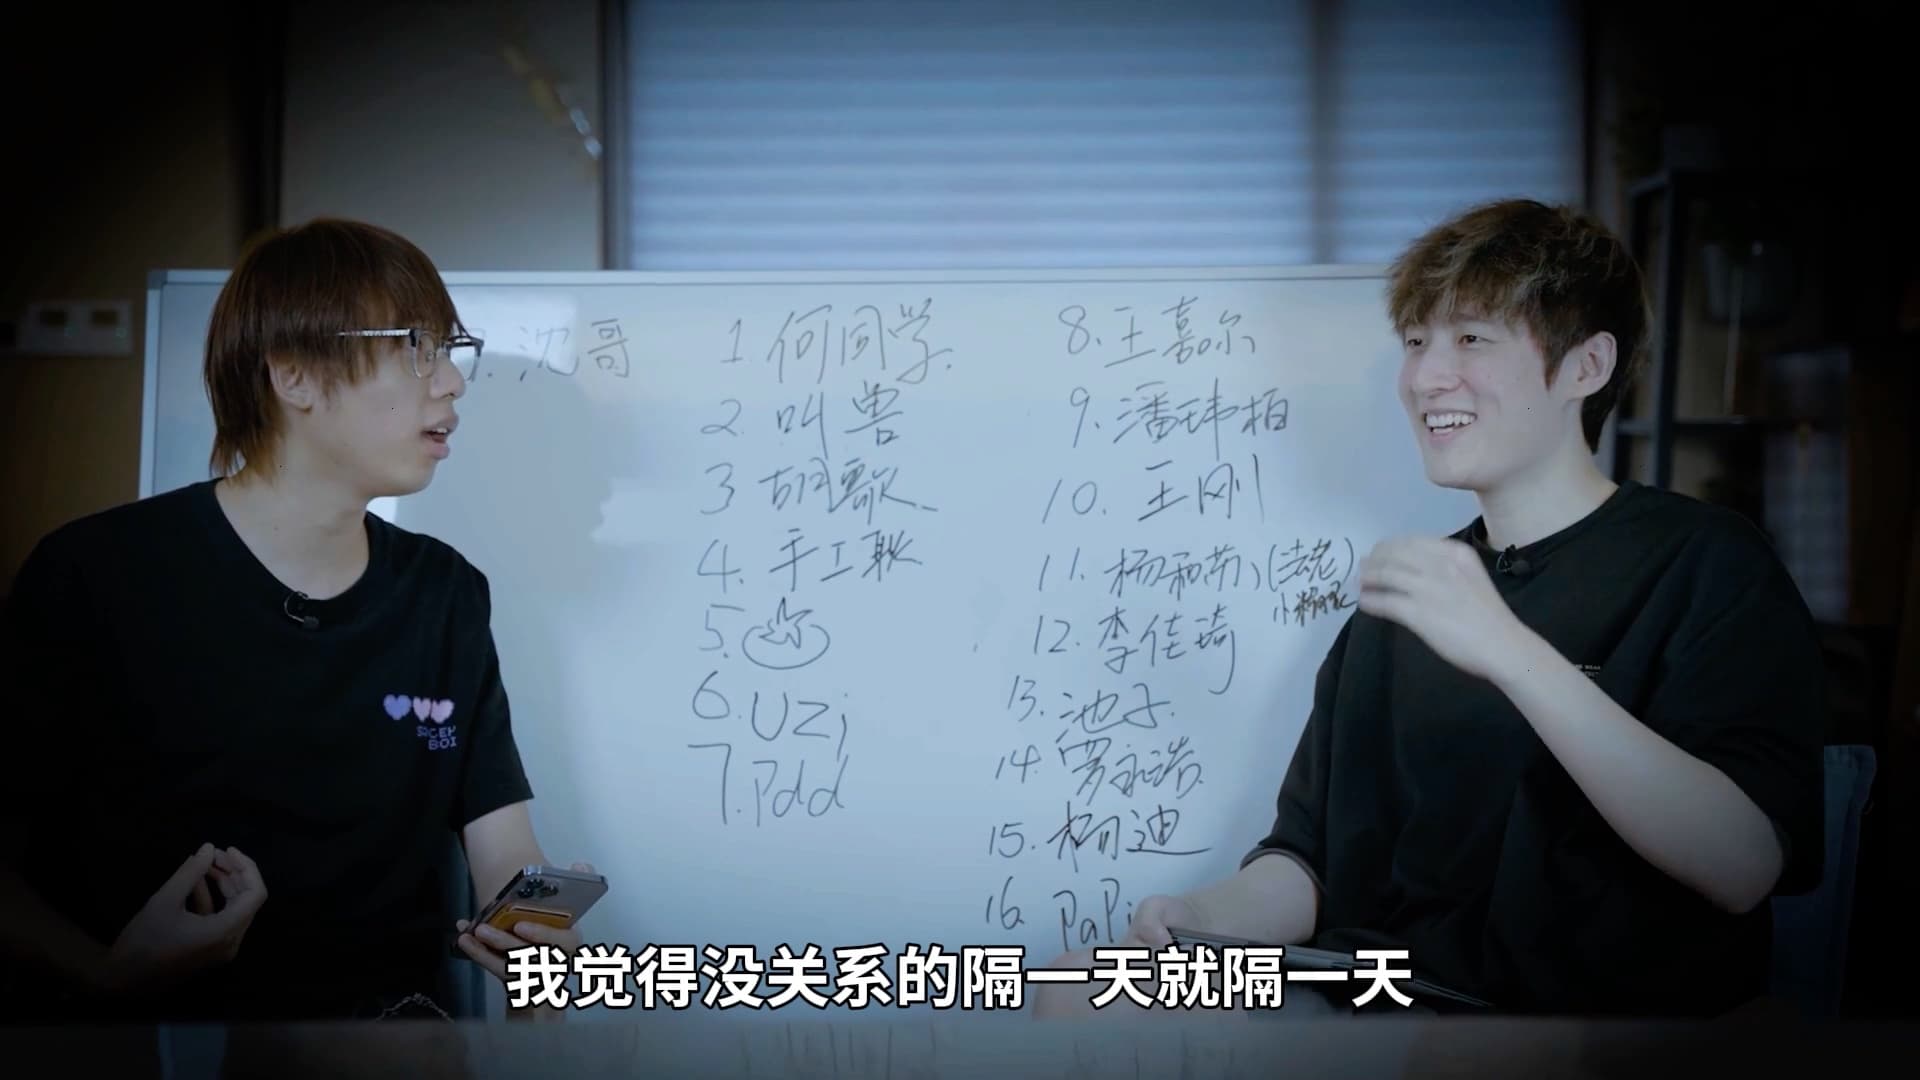 沈哥
1. 何同学
2. 叫兽
3 胡歌
4. 手工耿
5.
6. Uzi
7. Pdd
8. 王嘉尔
9. 潘玮柏
10. 王刚
11. 杨和苏 (法老)
小杨哥
12. 李佳琦
13. 池子
14. 罗永浩
15. 杨迪
16. PaPi
BOI
我觉得没关系的隔一天就隔一天